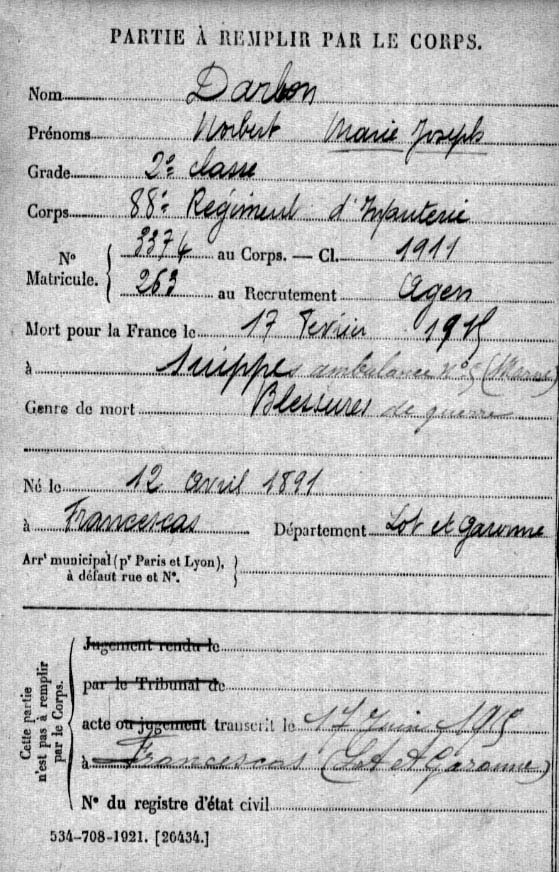 PARTIE À REMPLIR PAR LE CORPS.
Nom Darbon
Prénoms Norbert Marie Joseph
Grade 2e classe
Corps 88e Régiment d'Infanterie
No Matricule. 3374 au Corps. — Cl. 1911
263 au Recrutement Agen
Mort pour la France le 17 Fevrier 1915
à Suippes ambulance no 5 (Marne)
Genre de mort Blessures de guerre
Né le 12 avril 1891
à Francescas Département Lot et Garonne
Arrt municipal (pr Paris et Lyon),
à défaut rue et No.
Cette partie n'est pas à remplir par le Corps.
Jugement rendu le
par le Tribunal de
acte ou jugement transcrit le 17 Juin 1915
à Francescas (Lot et Garonne)
No du registre d'état civil
534-708-1921. [26434.]